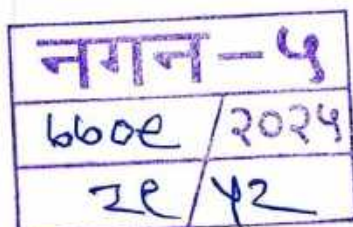 नगन-५
७७०९/२०२५
२९/५२